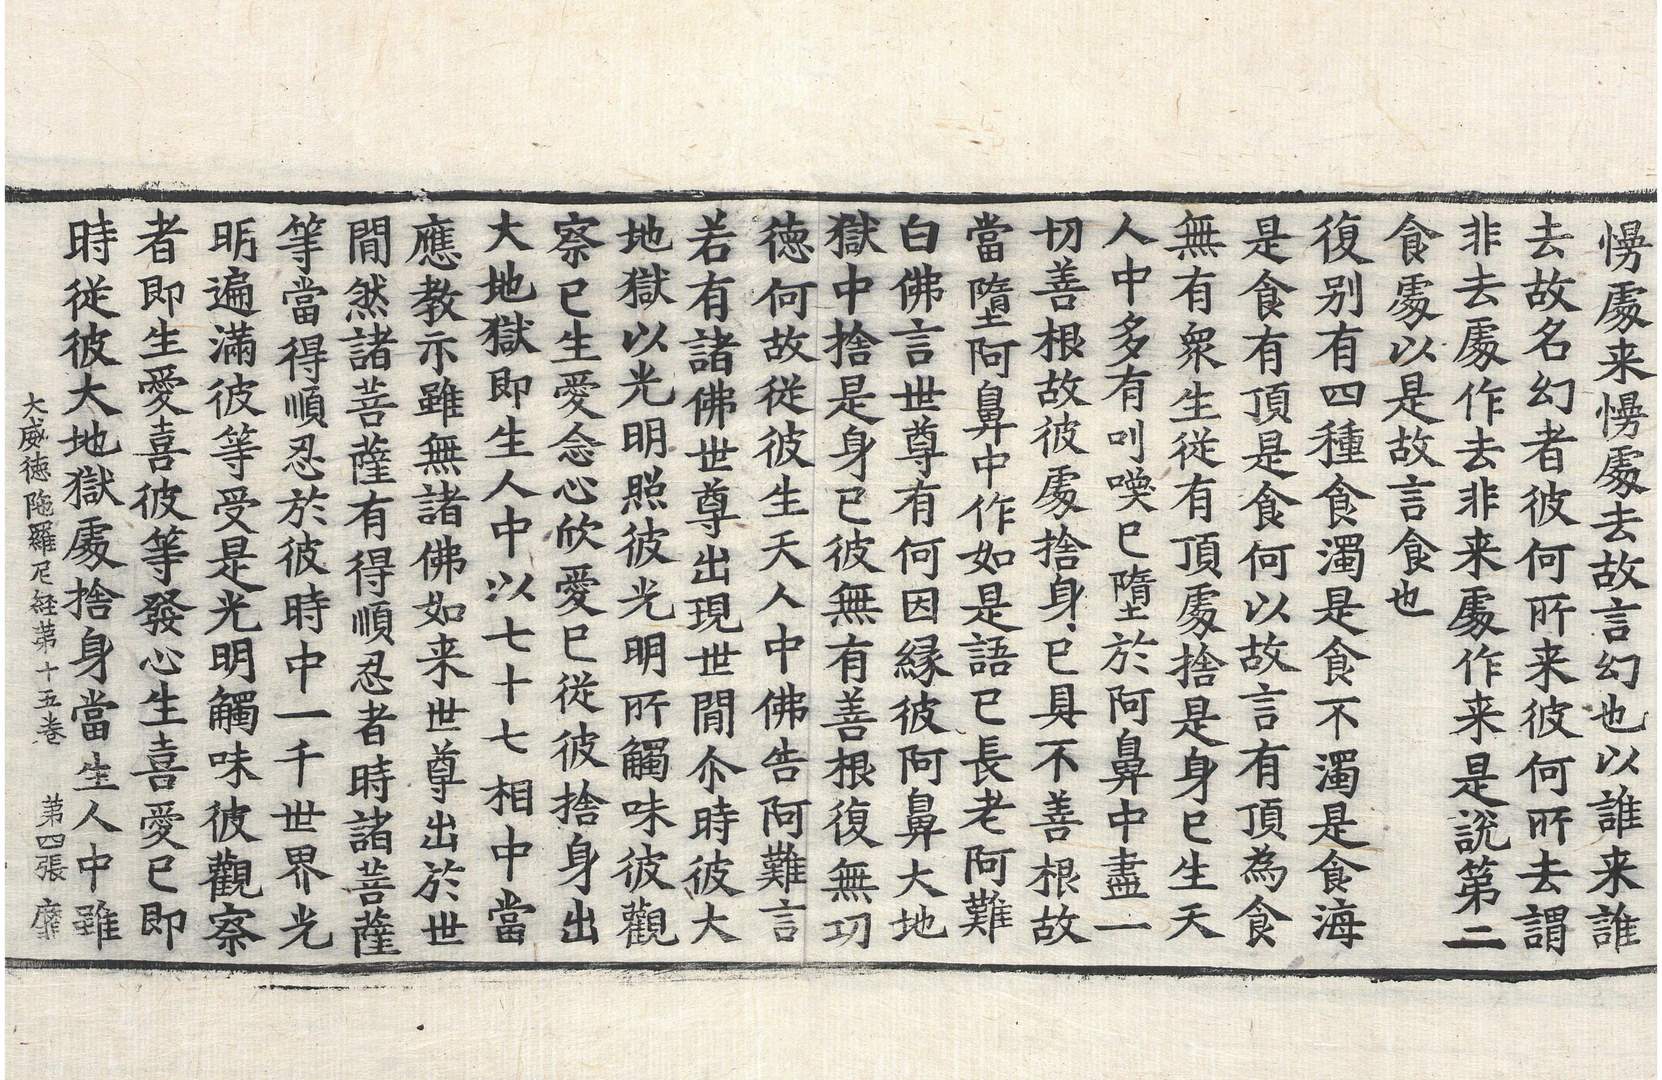 愣處来愣處去故言幻也以誰来誰
去故名幻者彼何所来彼何所去謂
非去處作去非来處作来是說第二
食處以是故言食也
復别有四種食濁是食不濁是食海
是食有頂是食何以故言有頂為食
無有衆生従有頂處捨是身已生天
人中多有叫喚已墮於阿鼻中盡一
切善根故彼處捨身已具不善根故
當墮阿鼻中作如是語已長老阿難
白佛言世尊有何因縁彼阿鼻大地
獄中捨是身已彼無有善根復無功
徳何故従彼生天人中佛告阿難言
若有諸佛世尊出現世間尒時彼大
地獄以光明照彼光明所觸味彼觀
察已生愛念心欣愛已従彼捨身出
大地獄即生人中以七十七相中當
應教示雖無諸佛如来世尊出於世
間然諸菩薩有得順忍者時諸菩薩
等當得順忍於彼時中一千世界光
明遍滿彼等受是光明觸味彼觀察
者即生愛喜彼等發心生喜愛已即
時従彼大地獄處捨身當生人中雖
大威徳陁羅尼経苐十五卷 苐四張 靡